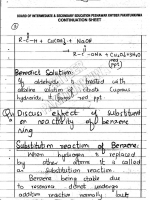 BOARD OF INTERMEDIATE & SECONDARY EDUCATION PESHAWAR KHYBER PUKHTUNKHWA
CONTINUATION SHEET
R-C-H + Cu(OH)2 + NaOH
R-C-ONa + Cu2O + H2O
red ppt
Benedict Solution:
If aldehyde is treated with
alkaline solution of Cupric
hydroxide, it gives red ppt.
Discuss effect of substituent
on reactivity of benzene
ring
Substitution reaction of Benzene:
When hydrogen is replaced
by other atoms it is called
as substitution reaction.
Benzene being stable due
to resonance donot undergo
addition reaction normally but